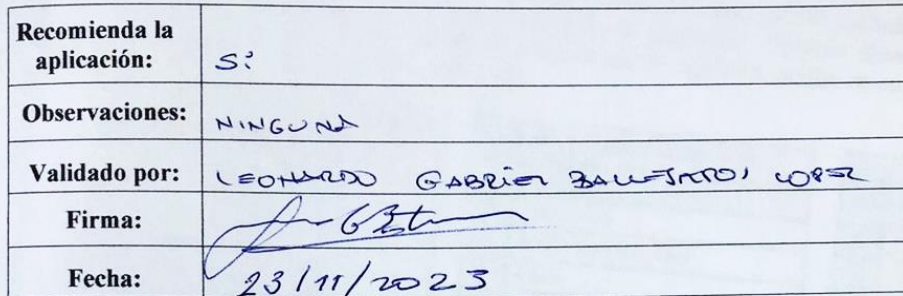 Recomienda la
aplicación: Si
Observaciones: NINGUNA
Validado por: LEONARDO GABRIEL BALLESTEROS LOPEZ
Firma:
Fecha: 23/11/2023